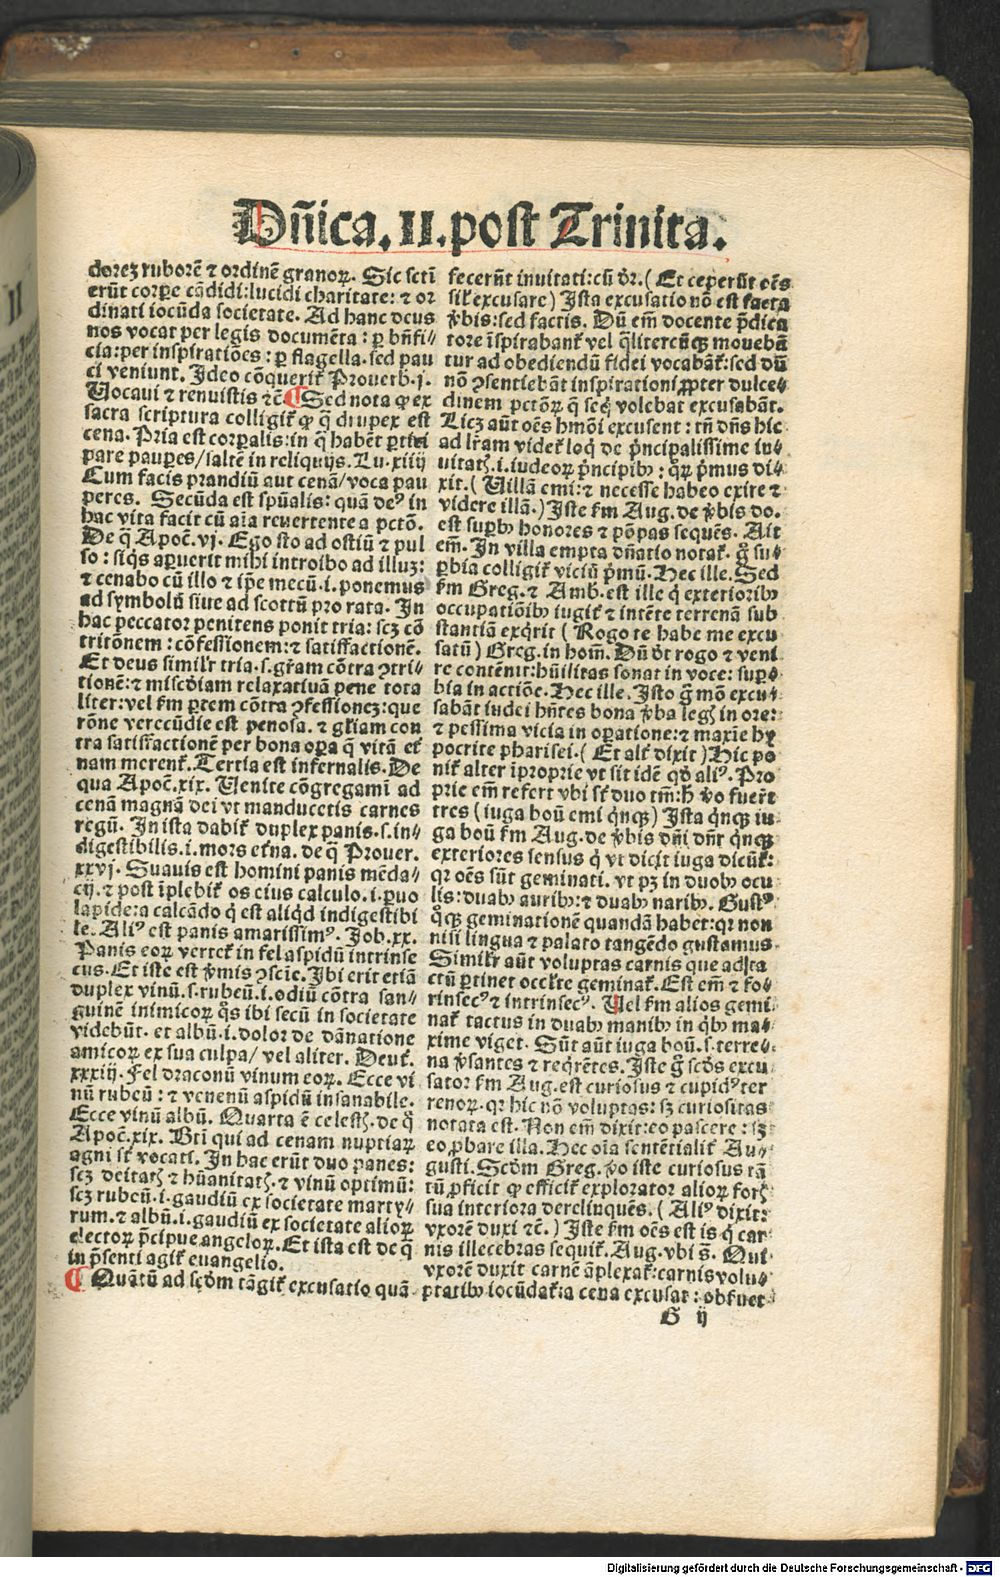 Dñica. II. post Trinita.
dorez ruborẽ ⁊ ordinẽ granoꝝ. Sic scti
erũt corꝑe cãdidi: lucidi charitate: ⁊ or
dinati iocũda societate. Ad hanc deus
nos vocat per legis documẽta: ꝑ bñfi-
cia: per inspiratiões: ꝑ flagella. sed pau
ci veniunt. Ideo cõqueriť Prouerb. j.
Uocaui ⁊ renuistis ⁊c̃ ¶ Sed nota ꝙ ex
sacra scriptura colligiť ꝙ q̃druplex est
cena. Pria est corꝑalis: in q̃ habẽt ꝑtici
pare pauꝑes / saltẽ in reliquijs. Lu. xiiij
Cum facis prandiũ aut cenã / voca pau
peres. Secũda est spũalis: quã deꝰ in
hac vita facit cũ aĩa reuertente a pctõ.
De q̃ Apoc̃. vj. Ego sto ad ostiũ ⁊ pul
so: siq̃s aꝑuerit mihi introibo ad illuz:
⁊ cenabo cũ illo ⁊ ip̃e mecũ. i. ponemus
ad symbolũ siue ad scottũ pro rata. In
hac peccator penitens ponit tria: scz cõ
tritõnem: cõfessionem: ⁊ satisfactionẽ.
Et deus similr tria. s. gr̃am cõtra ꝯtri-
tionẽ: ⁊ misc̃diam relaxatiuã pene tota
liter: vel ẜm ꝑtem cõtra ꝯfessionez: que
rõne verecũdie est penosa. ⁊ gl̃iam con
tra satisfactionẽ per bona oꝑa q̃ vitã eť
nam merenť. Tertia est infernalis. De
qua Apoc̃. xix. Uenite cõgregami ad
cenã magnã dei vt manducetis carnes
regũ. In ista dabiť duplex panis. s. in-
digestibilis. i. mors eťna. de q̃ Prouer.
xxvj. Suauis est homini panis mẽda-
cij. ⁊ post ĩplebiť os eius calculo. i. ꝑ uo
lapide: a calcãdo q̃ est aliq̃d indigestibi
le. Aliꝰ est panis amarissimꝰ. Job. xx.
Panis eoꝝ verteť in fel aspidũ intrinse
cus. Et iste est v̓mis ꝯscĩe. Ibi erit etiã
duplex vinũ. s. rubeũ. i. odiũ cõtra san-
guinẽ inimicoꝝ q̃s ibi secũ in societate
videbũt. et albũ. i. dolor de dãnatione
amicoꝝ ex sua culpa / vel aliter. Deuť.
xxxij. Fel draconũ vinum eoꝝ. Ecce vi
nũ rubeũ: ⁊ venenũ aspidũ insanabile.
Ecce vinũ albũ. Quarta ẽ celestꝭ. de q̃
Apoc̃. xix. Bti qui ad cenam nuptiaꝝ
agni sť vocati. In hac erũt duo panes:
scz deitatꝭ ⁊ hũanitatꝭ. ⁊ vinũ optimũ:
scz rubeũ. i. gaudiũ ex societate marty-
rum. ⁊ albũ. i. gaudiũ ex societate alioꝝ
electoꝝ p̃cipue angeloꝝ. Et ista est de q̃
in p̃senti agiť euangelio.
¶ Quãtũ ad scd̃m tãgiť excusatio quã
fecerũt inuitati: cũ d̓r. (Et ceperũt oẽs
siľ excusare) Ista excusatio nõ est facta
v̓bis: sed factis. Dũ em̃ docente p̃dica
tore ĩspirabanť vel q̃litercũqꝫ mouebã
tur ad obediendũ fidei vocabãť: sed dũ
nõ ꝯsentiebãt inspirationi ꝓpter dulce-
dinem pctõꝝ q̃ seq̃ volebãt excusabãt.
Licz aũt oẽs hmõi excusent: tñ dñs hic
ad lr̃am videť loq̃ de p̃ncipalissime in-
uitatꝭ. i. iudeoꝝ p̃ncipibꝰ: qꝝ p̃mus di-
xit. (Uillã emi: ⁊ necesse habeo exire ⁊
videre illã.) Iste ẜm Aug. de v̓bis do.
est suꝑbꝰ honores ⁊ põpas sequẽs. Ait
em̃. In villa empta dñatio notať. g̃ su-
ꝑbia colligiť viciũ p̃mũ. Hec ille. Sed
ẜm Greg. ⁊ Amb. est ille q̃ exterioribꝰ
occupatiõibꝰ iugiť ⁊ intẽte terrenã sub
stantiã exq̃rit (Rogo te habe me excu
satũ) Greg. in hom̃. Dũ d̓t rogo ⁊ veni
re contẽnit: hũilitas sonat in voce: suꝑ-
bia in actiõe. Hec ille. Isto g̃ mõ excu-
sabãt iudei hñtes bona v̓ba legꝭ in ore:
⁊ pessima vicia in oꝑatione: ⁊ maxie hy
pocrite pharisei. (Et alť dixit) Hic po
niť alter ĩproprie vt sit idẽ qd̓ aliꝰ. Pro
prie em̃ refert vbi sť duo tm̃: h̓ v̓o fuerť
tres (iuga boũ emi q̃nqꝫ) Ista q̃nqꝫ iu-
ga boũ ẜm Aug. de v̓bis dñi dñr q̃nqꝫ
exteriores sensus q̃ vt dicit iuga dicũť:
qꝛ oẽs sũt geminati. vt pꝫ in duobꝰ ocu
lis: duabꝰ auribꝰ: ⁊ duabꝰ naribꝰ. Gustꝰ
q̃qꝫ geminationẽ quandã habet: qꝛ non
nisi lingua ⁊ palato tangẽdo gustamus.
Similr aũt voluptas carnis que ad ta
ctũ ꝑtinet occľte geminať. Est em̃ ⁊ fo-
rinsecꝰ ⁊ intrinsecꝰ. Uel ẜm alios gemi
nať tactus in duabꝰ manibꝰ in q̃bꝰ ma-
xime viget. Sũt aũt iuga boũ. s. terre-
na v̓santes ⁊ req̃rẽtes. Iste g̃ scd̓s excu
sator ẜm Aug. est curiosus ⁊ cupidꝰ ter
renoꝝ. qꝛ hic nõ voluptas: sꝫ curiositas
notata est. Non em̃ dixit: eo pascere: sꝫ
eo ꝓbare illa. Hec oĩa sentẽtialiť Au-
gusti. Scd̓m Greg. v̓o iste curiosus tã
tũ ꝓficit ꝙ efficiť explorator alioꝝ forꝭ
sua interiora derelinquẽs. (Aliꝰ dixit:
vxorẽ duxi ⁊c̃.) Iste ẜm oẽs est is q̃ car-
nis illecebras sequiť. Aug. vbi s̃. Qui
vxorẽ duxit carnẽ ãplexať: carnis volu-
ptatibꝰ iocũdať: a cena excusať: obẜuet
G ij
Digitalisierung gefördert durch die Deutsche Forschungsgemeinschaft - DFG